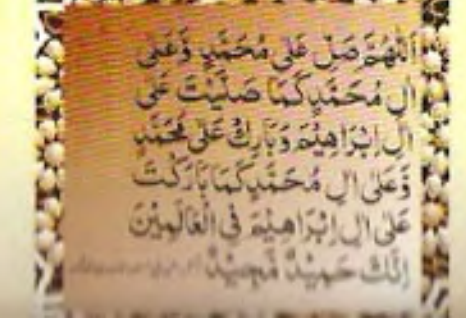 اَللّٰهُمَّ صَلِّ عَلٰى مُحَمَّدٍ وَّعَلٰى
اٰلِ مُحَمَّدٍ كَمَا صَلَّيْتَ عَلٰى
اٰلِ اِبْرَاهِيْمَ وَبَارِكْ عَلٰى مُحَمَّدٍ
وَّعَلٰى اٰلِ مُحَمَّدٍ كَمَا بَارَكْتَ
عَلٰى اٰلِ اِبْرَاهِيْمَ فِى الْعَالَمِيْنَ
اِنَّكَ حَمِيْدٌ مَّجِيْدٌ